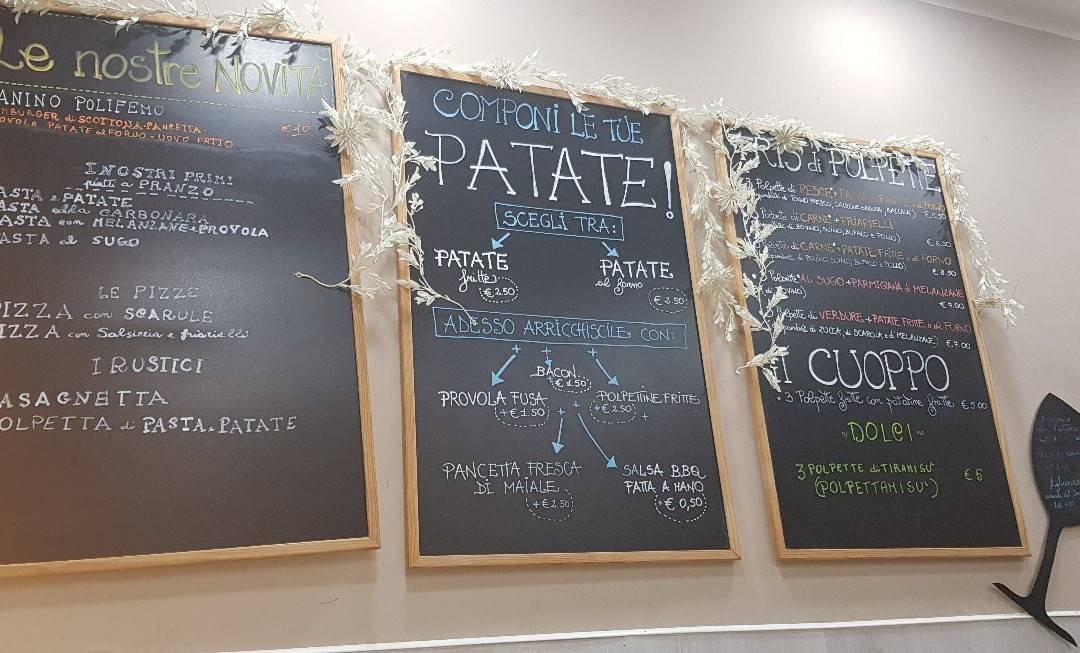 Le nostre NOVITÀ
ANINO POLIFEMO
MBURGER di SCOTTONA-PANCETTA-
OVOLA PATATE al FORNO - UOVO FRITTO €10
I NOSTRI PRIMI
piatti a PRANZO
ASTA e PATATE
ASTA alla CARBONARA
ASTA con MELANZANE e PROVOLA
ASTA al SUGO
LE PIZZE
PIZZA con SCAROLE
PIZZA con Salsiccia e friarielli
I RUSTICI
ASAGNETTA
OLPETTA di PASTA e PATATE
COMPONI LE TUE
PATATE!
SCEGLI TRA:
PATATE
fritte
€ 2.50
PATATE
al forno
€ 2.50
ADESSO ARRICCHISCILE CON:
BACON
€ 1.50
PROVOLA FUSA
+€ 1.50
POLPETTINE FRITTE
+€ 2.50
PANCETTA FRESCA
DI MAIALE
+€ 2.50
SALSA BBQ
FATTA A MANO
+€ 0,50
RIS di POLPETTE
Polpette di PESCE + PATATE FRITTE o al FORNO
€ 8.50
Polpette di CARNE + FRIARIELLI
di BOVINO, SUINO, BUFALO e POLLO) € 8.50
Polpette di CARNE + PATATE FRITTE o al FORNO
di BOVINO, SUINO, BUFALO e POLLO) € 8.50
Polpette AL SUGO + PARMIGIANA di MELANZANE
BOVINO)
Polpette di VERDURE + PATATE FRITTE o al FORNO
di ZUCCA, di SCAROLA e di MELANZANE) € 7.00
CUOPPO
3 Polpette fritte con patatine fritte € 5.00
~DOLCI~
3 POLPETTE di TIRAMISU' € 5
(POLPETTAMISU')